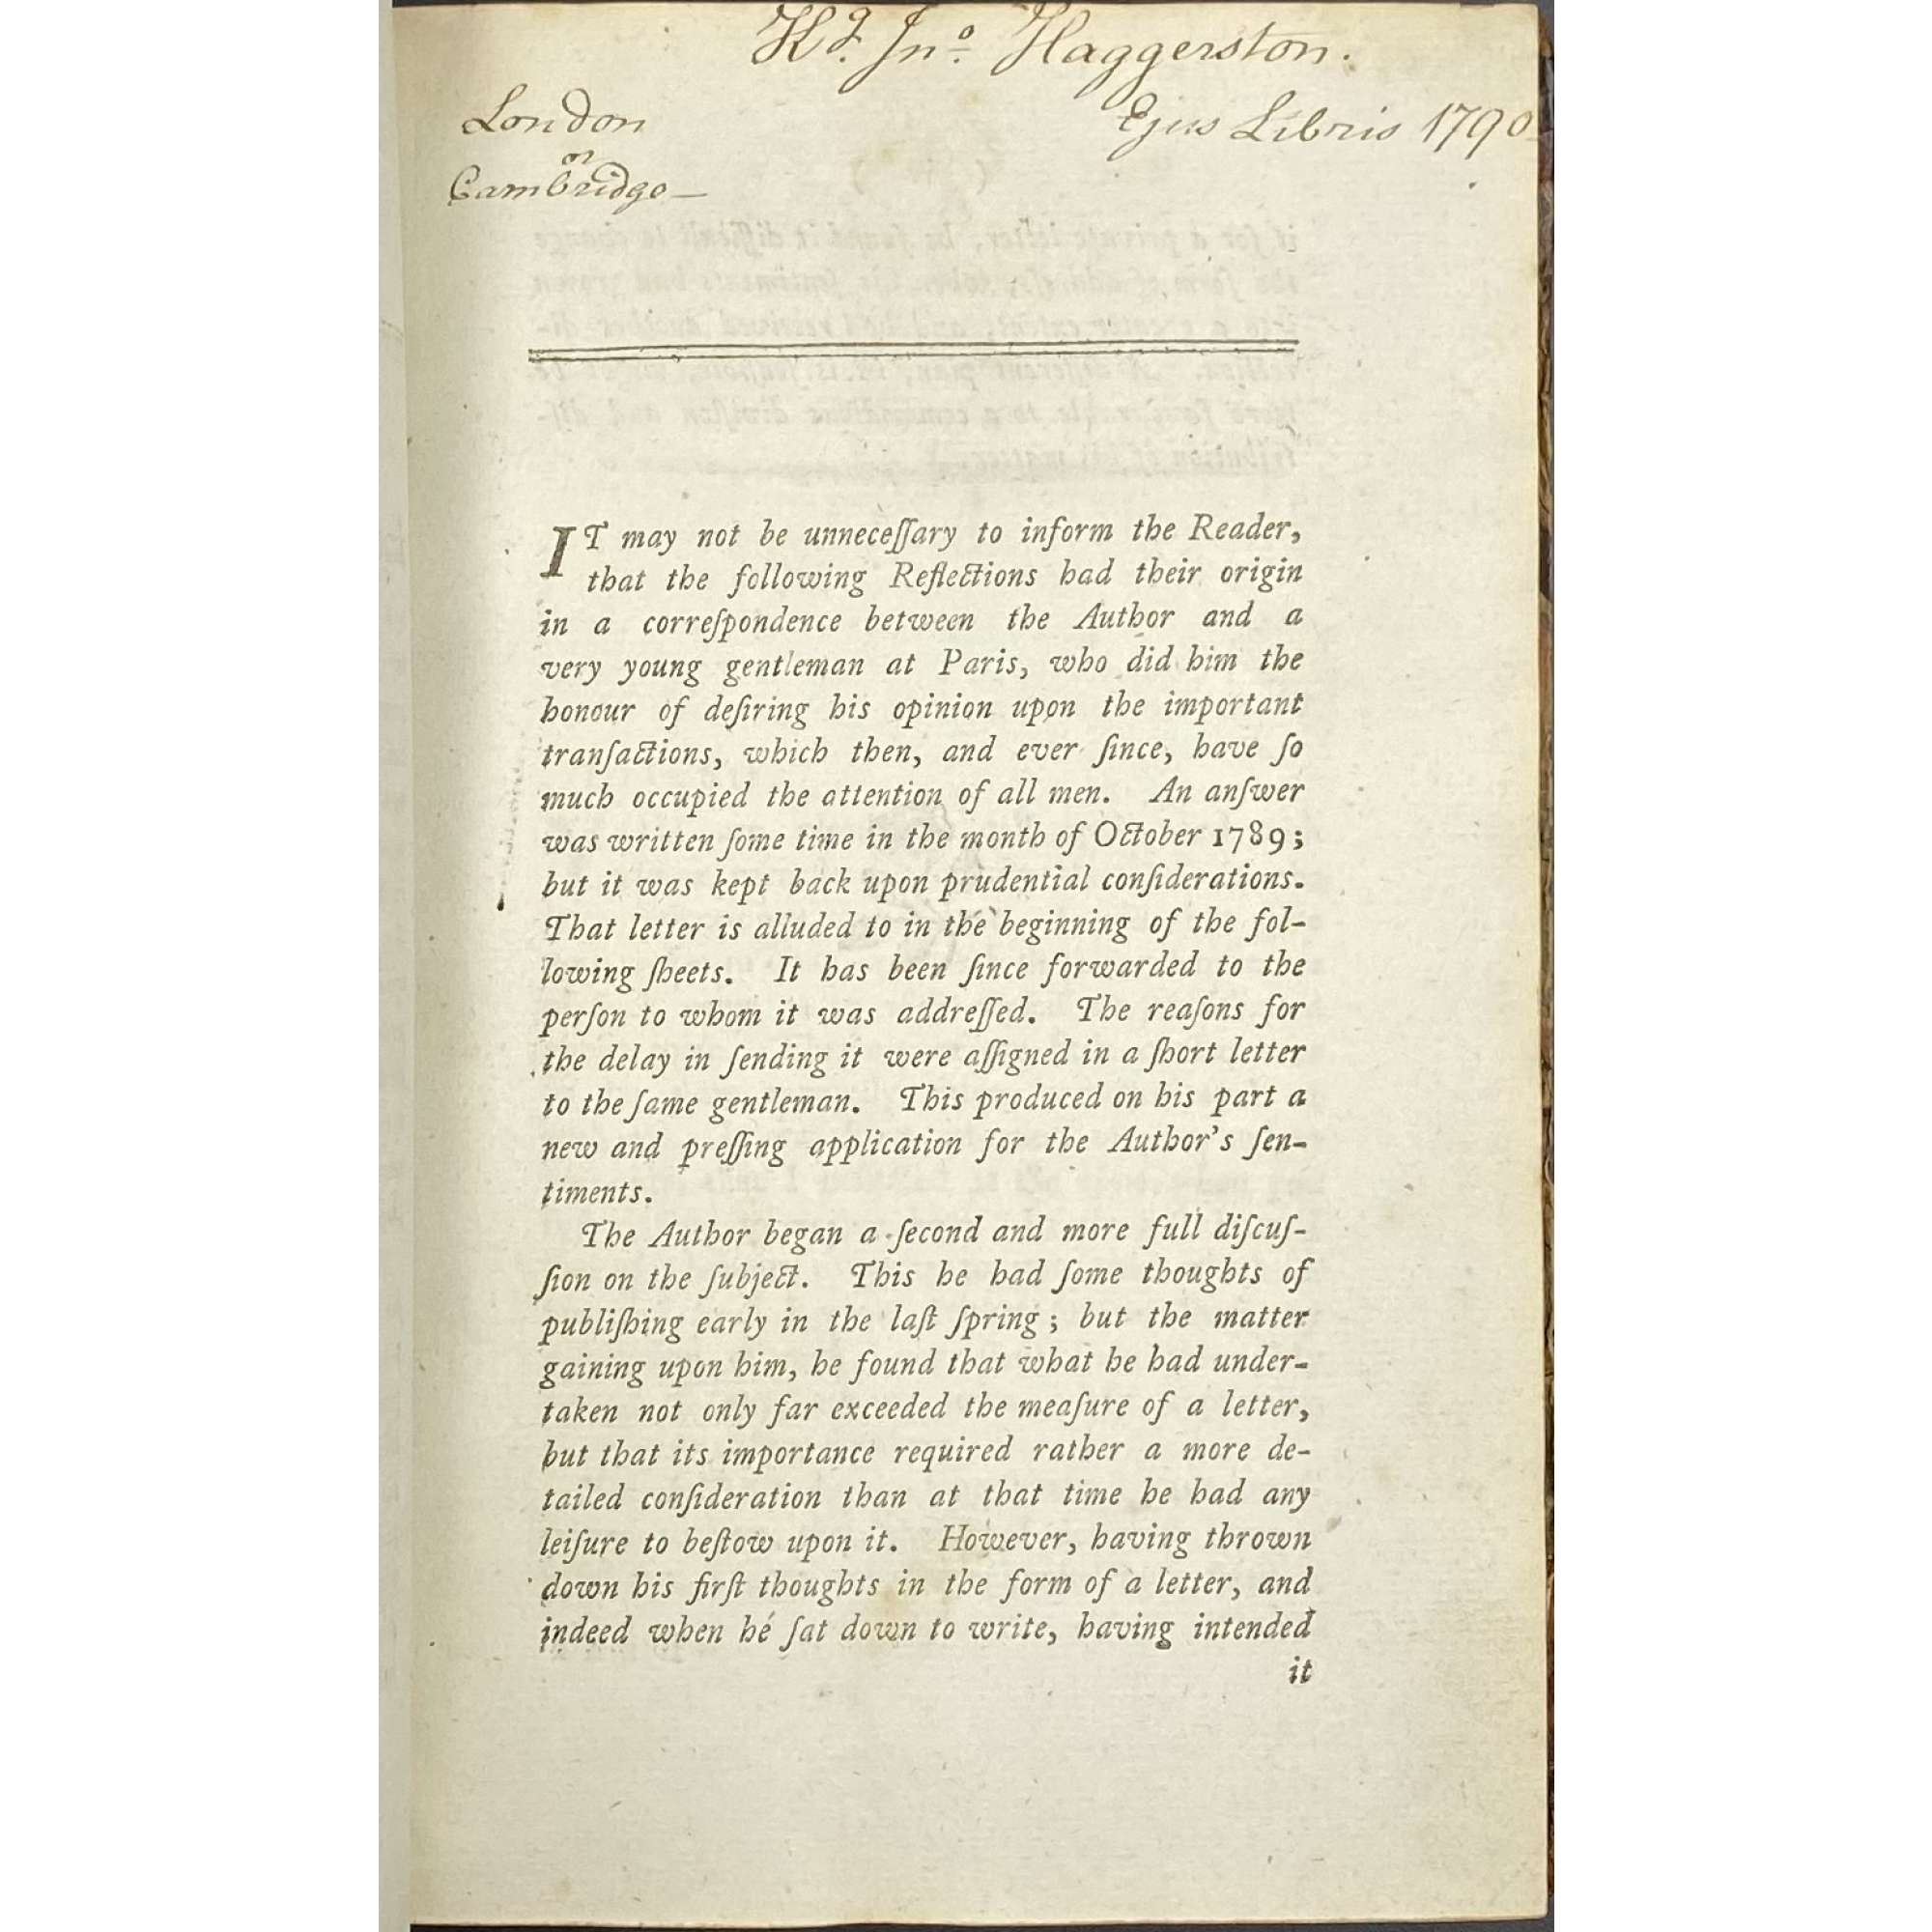 Jnº. Haggerston.
London
Ejus Libris 1790
or
Cambridge—
IT may not be unneceſſary to inform the Reader,
that the following Reflections had their origin
in a correſpondence between the Author and a
very young gentleman at Paris, who did him the
honour of deſiring his opinion upon the important
tranſactions, which then, and ever ſince, have ſo
much occupied the attention of all men. An anſwer
was written ſome time in the month of October 1789;
but it was kept back upon prudential conſiderations.
That letter is alluded to in the beginning of the fol-
lowing ſheets. It has been ſince forwarded to the
perſon to whom it was addreſſed. The reaſons for
the delay in ſending it were aſſigned in a ſhort letter
to the ſame gentleman. This produced on his part a
new and preſſing application for the Author's ſen-
timents.
The Author began a ſecond and more full diſcuſ-
ſion on the ſubject. This he had ſome thoughts of
publiſhing early in the laſt ſpring; but the matter
gaining upon him, he found that what he had under-
taken not only far exceeded the meaſure of a letter,
but that its importance required rather a more de-
tailed conſideration than at that time he had any
leiſure to beſtow upon it. However, having thrown
down his firſt thoughts in the form of a letter, and
indeed when he ſat down to write, having intended
it